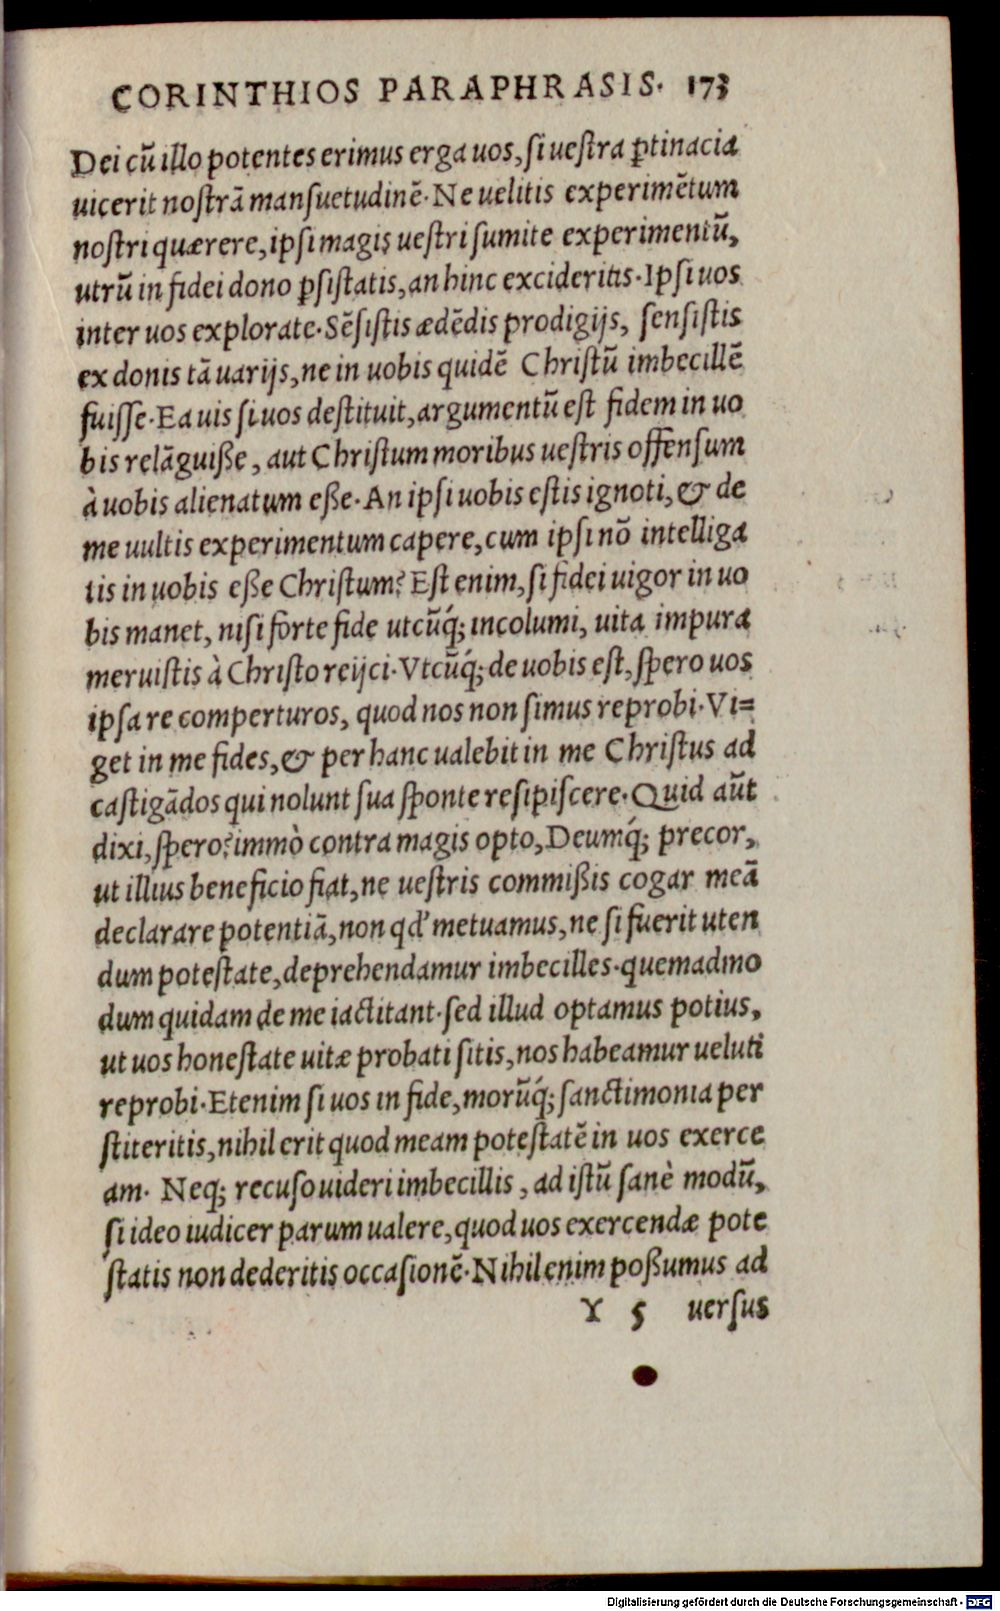 CORINTHIOS PARAPHRASIS. 173
Dei cū illo potentes erimus erga uos, si uestra ꝑtinacia
uicerit nostrā mansuetudinē. Ne uelitis experimētum
nostri quærere, ipsi magis uestri sumite experimentū,
utrū in fidei dono ꝑsistatis, an hinc excideritis. Ipsi uos
inter uos explorate. Sēsistis ædēdis prodigijs, sensistis
ex donis tā uarijs, ne in uobis quidē Christū imbecillē
fuisse. Ea uis si uos destituit, argumentū est fidem in uo
bis relāguiße, aut Christum moribus uestris offensum
à uobis alienatum eße. An ipsi uobis estis ignoti, & de
me uultis experimentum capere, cum ipsi nō intelliga
tis in uobis eße Christum? Est enim, si fidei uigor in uo
bis manet, nisi forte fide utcūq́; incolumi, uita impura
meruistis à Christo reijci. Vtcūq́; de uobis est, spero uos
ipsa re comperturos, quod nos non simus reprobi. Vi=
get in me fides, & per hanc ualebit in me Christus ad
castigādos qui nolunt sua sponte resipiscere. Quid aūt
dixi, spero? immò contra magis opto, Deumq́; precor,
ut illius beneficio fiat, ne uestris commißis cogar meā
declarare potentiā, non qd' metuamus, ne si fuerit uten
dum potestate, deprehendamur imbecilles. quemadmo
dum quidam de me iactitant. sed illud optamus potius,
ut uos honestate uitæ probati sitis, nos habeamur ueluti
reprobi. Etenim si uos in fide, morūq́; sanctimonia per
stiteritis, nihil erit quod meam potestatē in uos exerce
am. Neq; recuso uideri imbecillis, ad istū sanè modū,
si ideo iudicer parum ualere, quod uos exercendæ pote
statis non dederitis occasionē. Nihil enim poßumus ad
Y 5 uersus
Digitalisierung gefördert durch die Deutsche Forschungsgemeinschaft - DFG